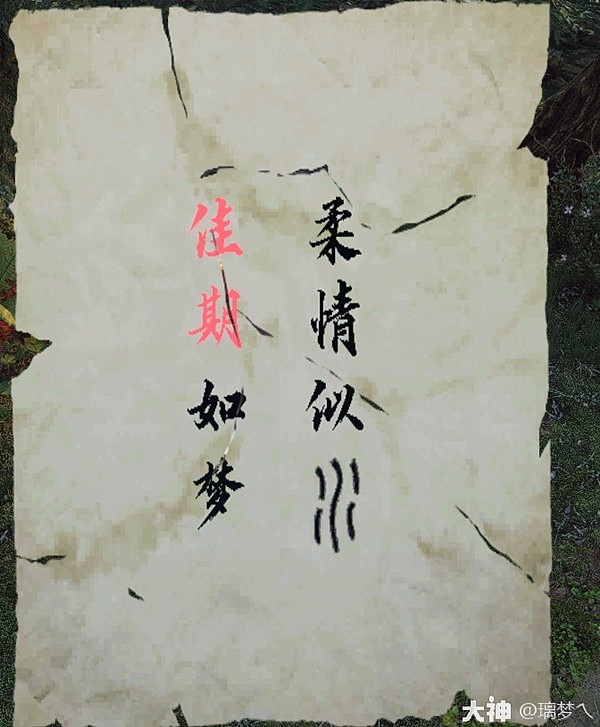 柔情似水
佳期如梦
大神 @璃梦ヘ